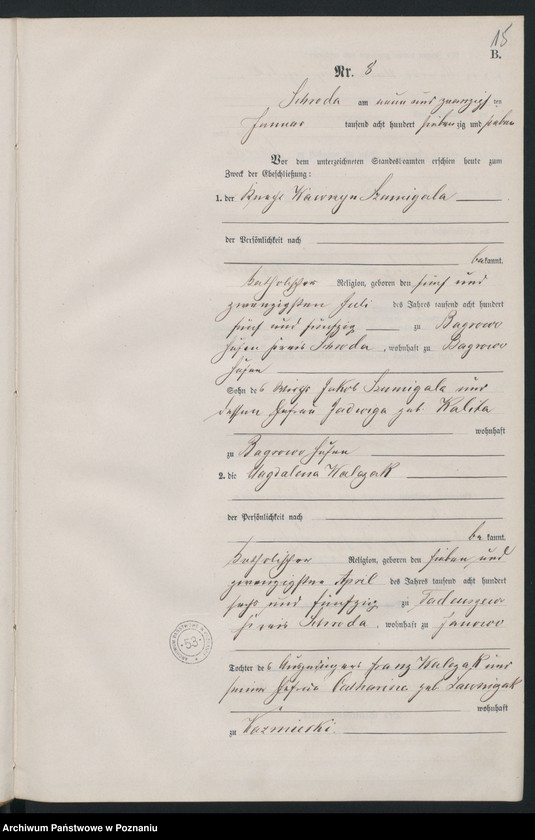 15
B.
Nr. 8
Schroda am neun und zwanzigsten
Januar tausend acht hundert siebenzig und sieben
Vor dem unterzeichneten Standesbeamten erschien heute zum
Zweck der Eheschließung:
1. der Knecht Wawrzyn Szumigala
der Persönlichkeit nach
bekannt,
katholischer Religion, geboren den fünf und
zwanzigsten Juli des Jahres tausend acht hundert
fünf und fünfzig zu Bagrowo
Kreis Schroda, wohnhaft zu Bagrowo
Sohn des Wirths Jakob Szumigala und
dessen Ehefrau Jadwiga geb Kalita
wohnhaft
zu Bagrowo
2. die Magdalena Walczak
der Persönlichkeit nach
bekannt,
katholischer Religion, geboren den sieben und
zwanzigsten April des Jahres tausend acht hundert
sechs und fünfzig zu Tadeuszewo
Kreis Schroda, wohnhaft zu Janowo
Tochter des Franz Walczak und
seiner Ehefrau Catharina geb
wohnhaft
zu Kazmierki
ARCHIWUM PAŃSTWOWE W POZNANIU
53
Archiwum Państwowe w Poznaniu